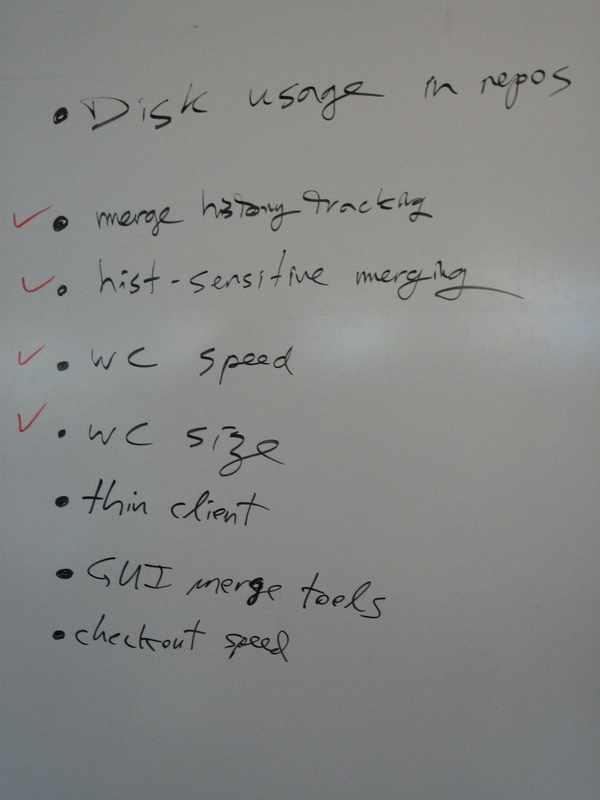 • Disk usage in repos
✓ • merge history tracking
✓ • hist-sensitive merging
✓ • WC speed
✓ • WC size
• thin client
• GUI merge tools
• checkout speed